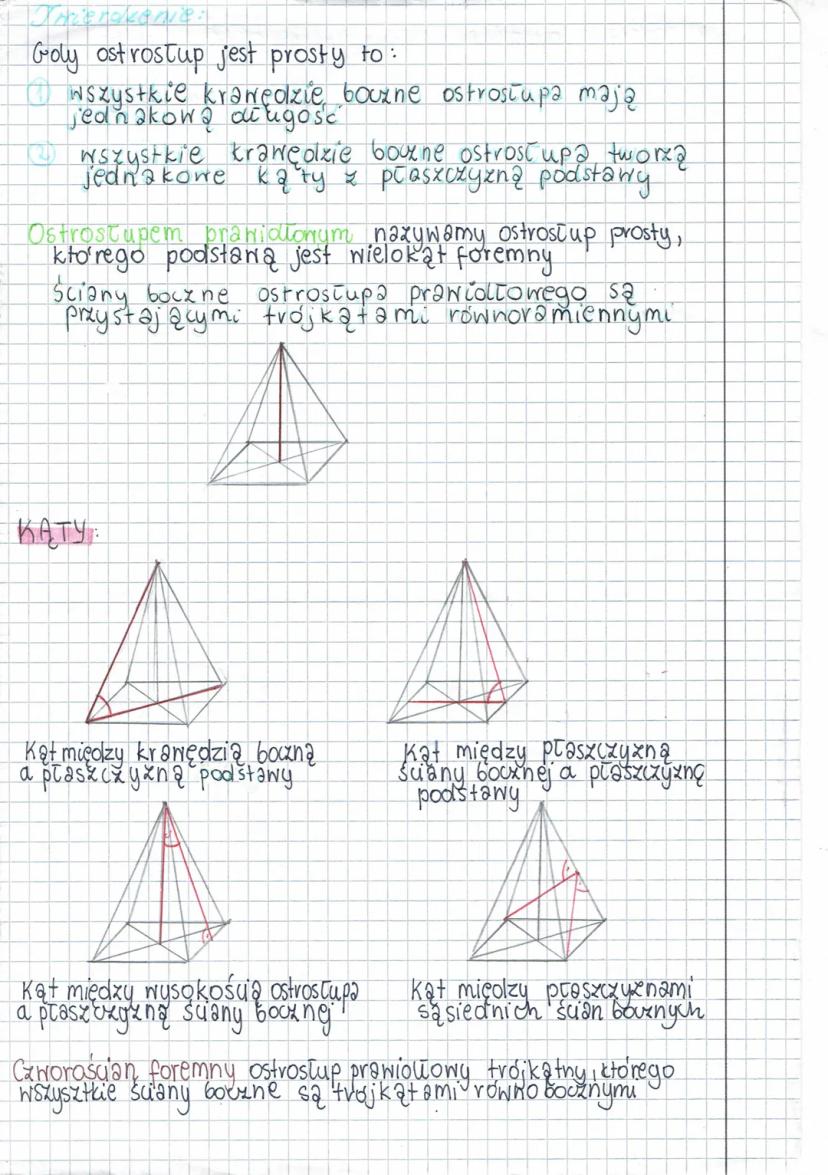 Twierdzenie:
Gdy ostrosłup jest prosty to:
① wszystkie krawędzie boczne ostrosłupa mają
jednakową długość
② wszystkie krawędzie boczne ostrosłupa tworzą
jednakowe kąty z płaszczyzną podstawy
Ostrosłupem prawidłowym nazywamy ostrosłup prosty,
którego podstawą jest wielokąt foremny
Ściany boczne ostrosłupa prawidłowego są
przystającymi trójkątami równoramiennymi
KĄTY:
Kąt między krawędzią boczną
a płaszczyzną podstawy
Kąt między płaszczyzną
ściany bocznej a płaszczyzną
podstawy
Kąt między wysokością ostrosłupa
a płaszczyzną ściany bocznej
Kąt między płaszczyznami
sąsiednich ścian bocznych
Czworościan foremny ostrosłup prawidłowy trójkątny, którego
wszysztkie ściany boczne są trójkątami równobocznymi